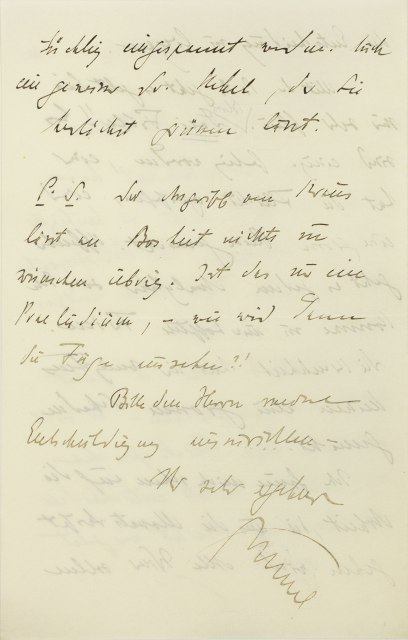 tüchtig eingespannt werden. Auch
ein gewisser Dr. Nebel, der Sie
herzlichst grüssen lässt.
P. S. Der Angriff von Kraus
lässt an Bosheit nichts zu
wünschen übrig. Ist das nur ein
Praeludium, – wie wird dann
die Fuge aussehen?!
Bitte den Herrn meine
Entschuldigung auszurichten
Ihr sehr ergebener